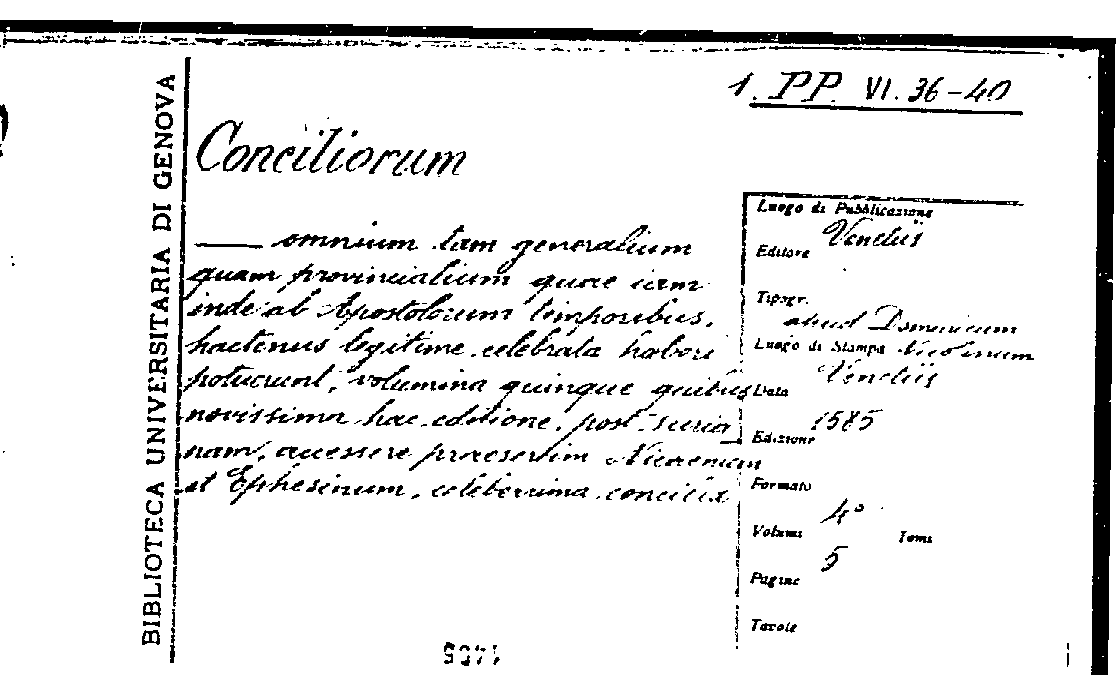 1. PP. VI. 36-40
BIBLIOTECA UNIVERSITARIA DI GENOVA
Conciliorum
—— omnium tam generalium
quam provincialium quae iam
inde ab Apostolorum temporibus,
hactenus legitime celebrata haberi
potuerunt, volumina quinque quibus
novissima hac editione, post Suria_
nam, accessere praesertim Nicaenum
et Ephesinum, celeberrima concilia
Luogo di Pubblicazione
Venetiis
Editore
Tipogr.
apud Dominicum
Nicolinum
Luogo di Stampa
Venetiis
Data
1585
Edizione
Formato
4°
Volumi
5
Tomi
Pagine
Tavole